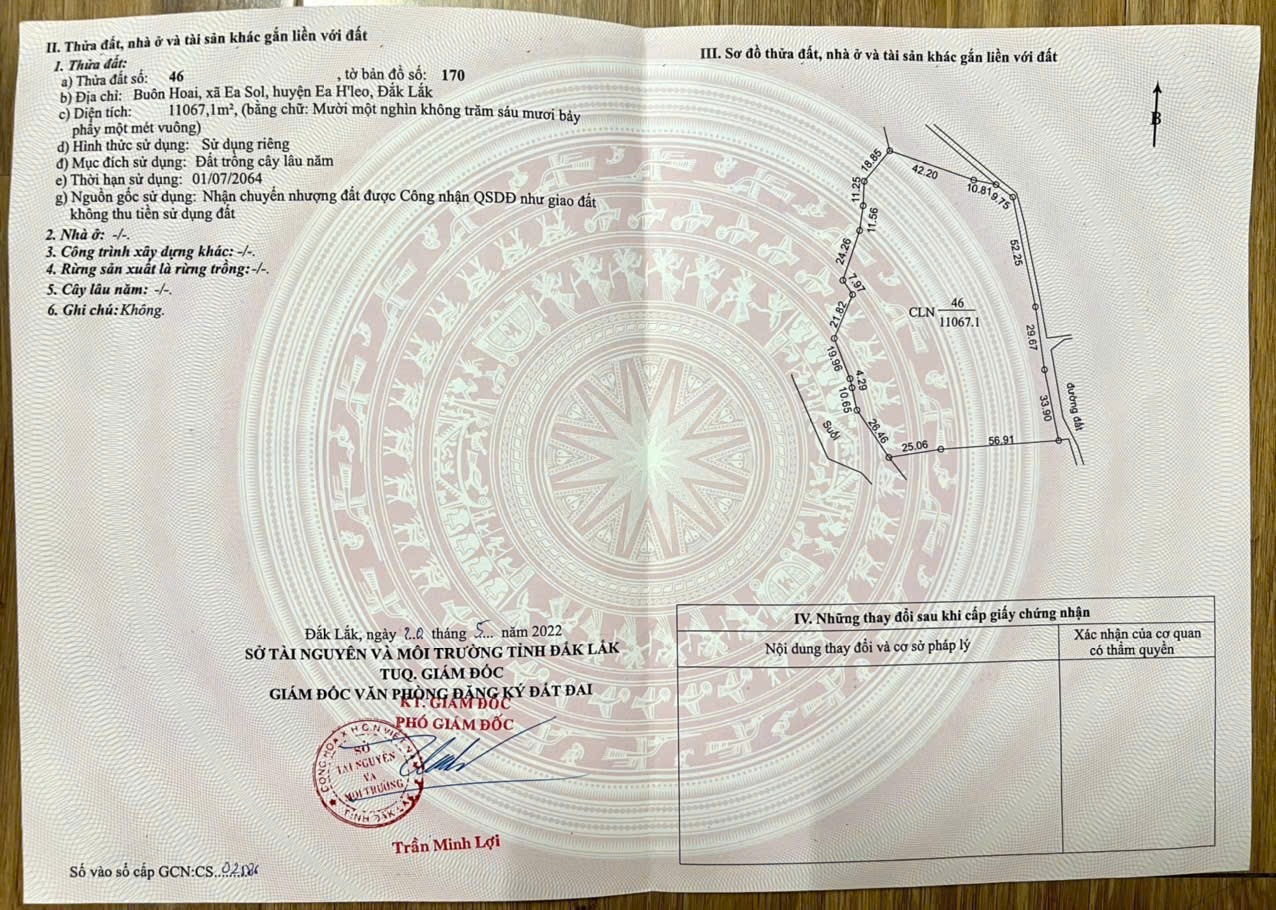 II. Thửa đất, nhà ở và tài sản khác gắn liền với đất
1. Thửa đất:
a) Thửa đất số: 46 , tờ bản đồ số: 170
b) Địa chỉ: Buôn Hoai, xã Ea Sol, huyện Ea H'leo, Đắk Lắk
c) Diện tích: 11067,1m², (bằng chữ: Mười một nghìn không trăm sáu mươi bảy
phẩy một mét vuông)
d) Hình thức sử dụng: Sử dụng riêng
đ) Mục đích sử dụng: Đất trồng cây lâu năm
e) Thời hạn sử dụng: 01/07/2064
g) Nguồn gốc sử dụng: Nhận chuyển nhượng đất được Công nhận QSDĐ như giao đất
không thu tiền sử dụng đất
2. Nhà ở: -/-.
3. Công trình xây dựng khác: -/-.
4. Rừng sản xuất là rừng trồng: -/-.
5. Cây lâu năm: -/-.
6. Ghi chú: Không.
Đắk Lắk, ngày 20 tháng 5... năm 2022
SỞ TÀI NGUYÊN VÀ MÔI TRƯỜNG TỈNH ĐẮK LẮK
TUQ. GIÁM ĐỐC
GIÁM ĐỐC VĂN PHÒNG ĐĂNG KÝ ĐẤT ĐAI
KT. GIÁM ĐỐC
PHÓ GIÁM ĐỐC
SỞ
TÀI NGUYÊN
VÀ
MÔI TRƯỜNG
TỈNH ĐẮK LẮK
Trần Minh Lợi
Số vào sổ cấp GCN:CS
III. Sơ đồ thửa đất, nhà ở và tài sản khác gắn liền với đất
B
18.85
42.20
10.81
9.75
11.25
11.56
24.26
52.25
7.97
21.82
CLN 46
11067.1
29.67
19.96
4.29
10.65
33.90
đường đất
Suối
26.46
25.06
56.91
IV. Những thay đổi sau khi cấp giấy chứng nhận
Nội dung thay đổi và cơ sở pháp lý
Xác nhận của cơ quan
có thẩm quyền